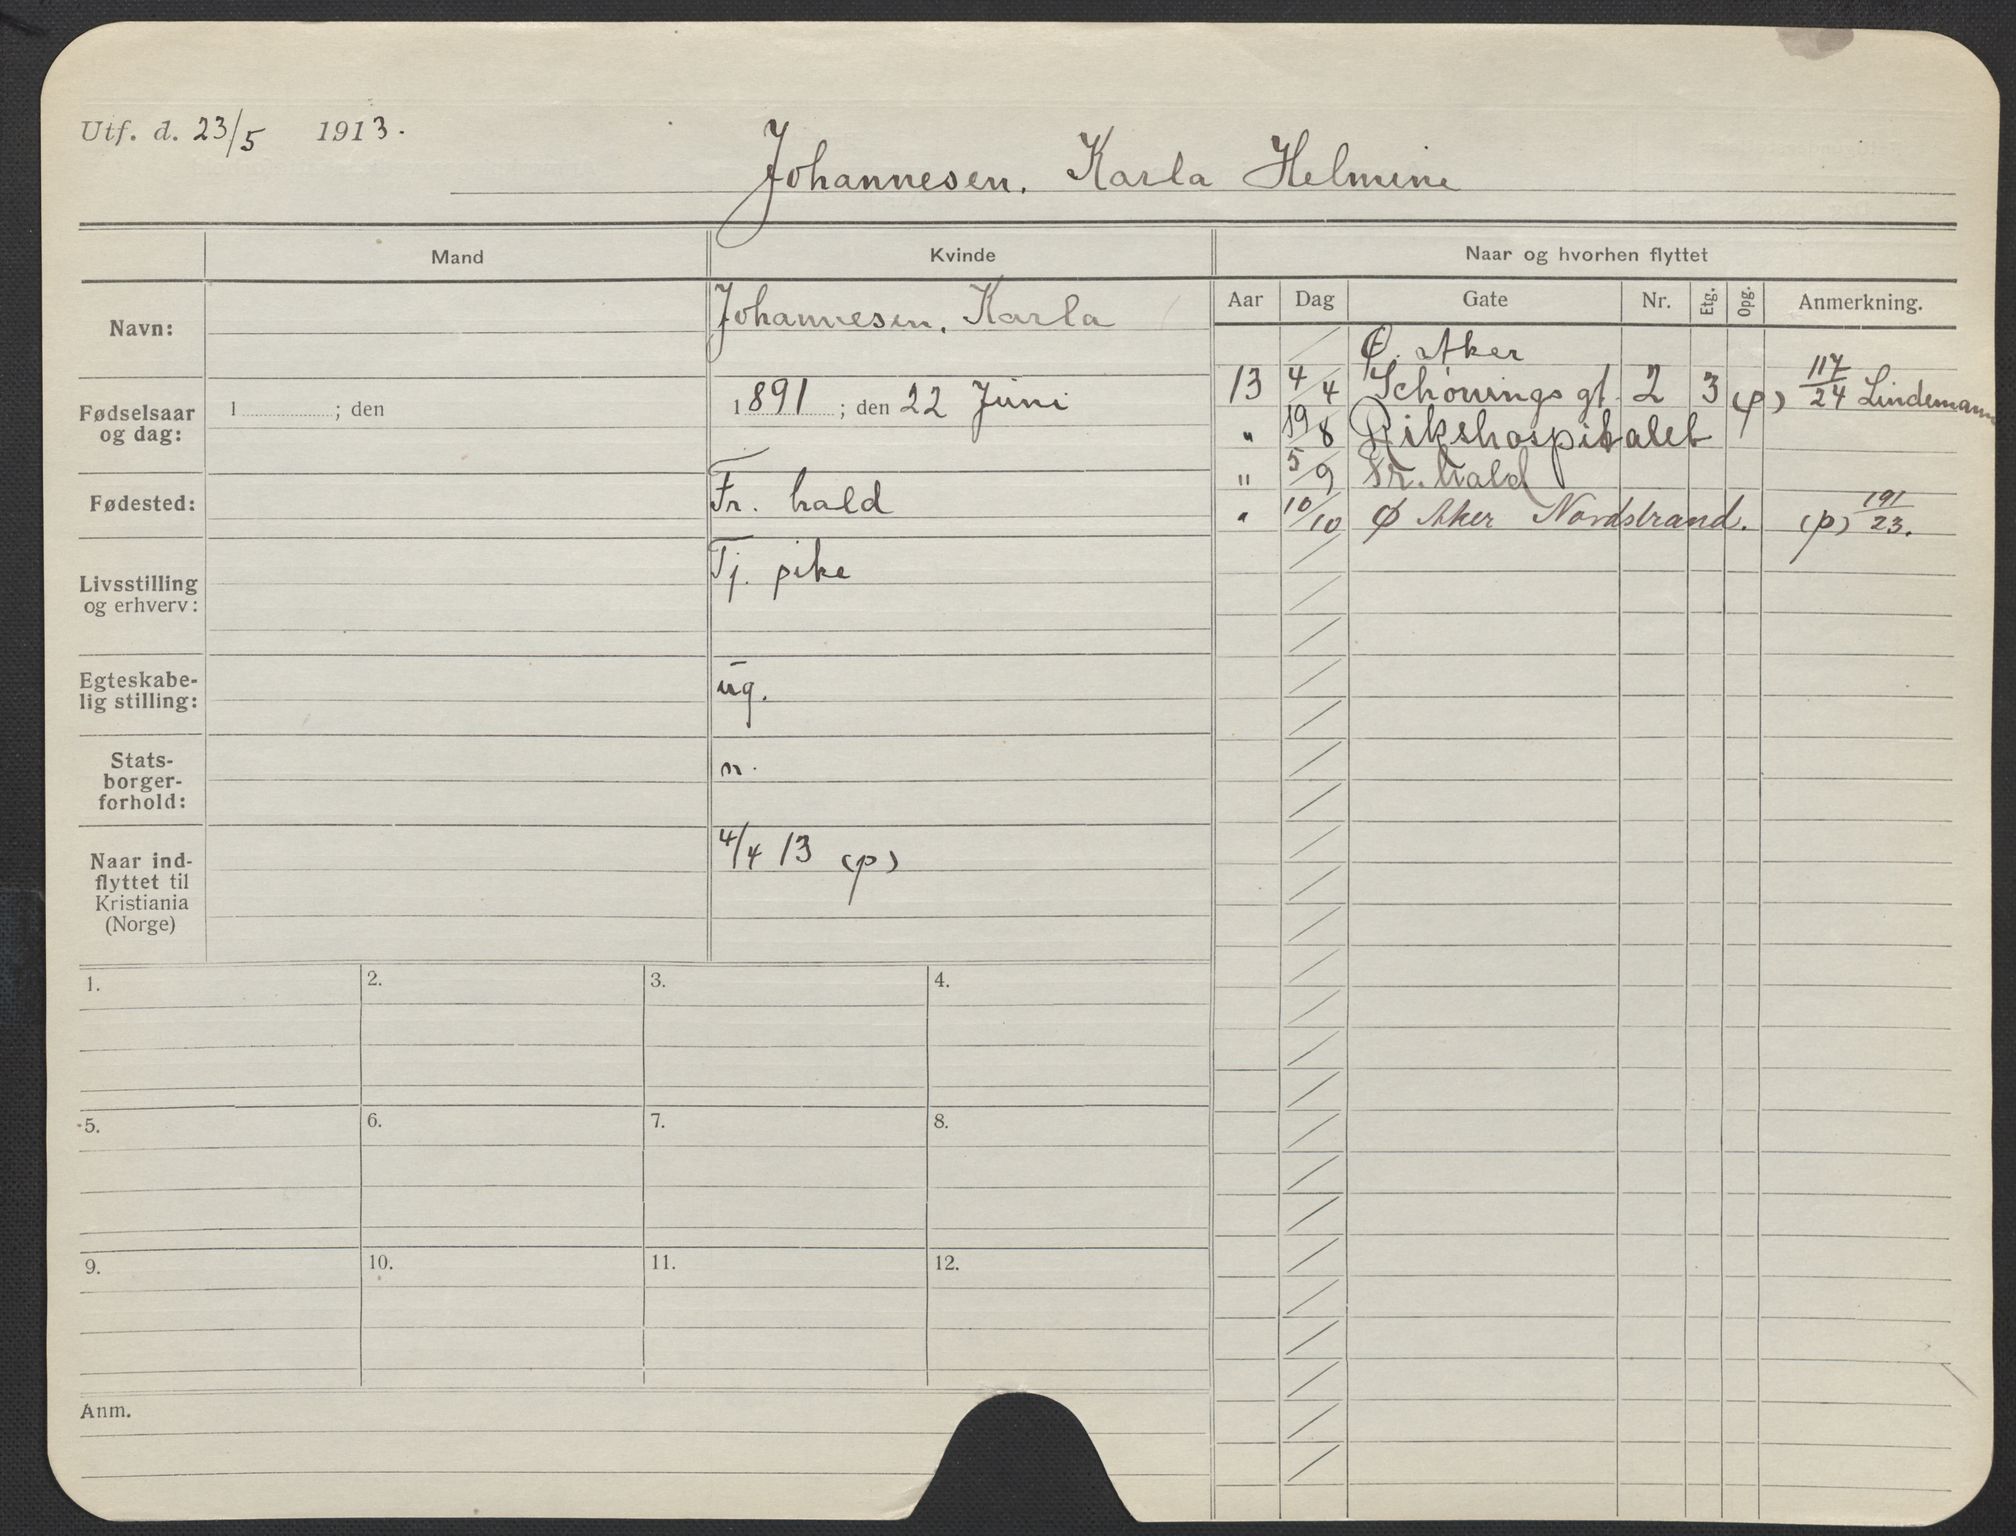 Utf. d. 23/5 1913.
Johannesen. Karla Helmine
Mand
Kvinde
Naar og hvorhen flyttet
Navn:
Johannesen. Karla
Fødselsaar
og dag:
1 ; den
1891 ; den 22 Juni
Fødested:
Fr. hald
Livsstilling
og erhverv:
Tj. pike
Egteskabe-
lig stilling:
ug.
Stats-
borger-
forhold:
n.
Naar ind-
flyttet til
Kristiania
(Norge)
4/4 13 (p)
Aar Dag Gate Nr. Etg. Opg. Anmerkning.
Ø. Aker
13 4/4 Schønings gt. 2 3 (p) 117/24 Lindemann
" 19/8 Rikshospitalet
" 5/9 Fr. hald
" 10/10 Ø Aker Nordstrand. (p) 191/23.
1. 2. 3. 4.
5. 6. 7. 8.
9. 10. 11. 12.
Anm.